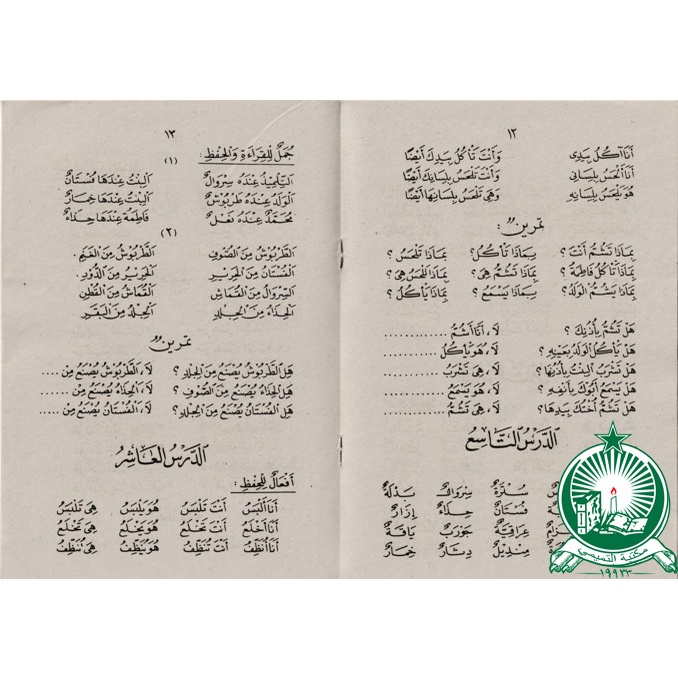 ١٢
أَنَا آكُلُ بِيَدِى وَأَنْتَ تَأْكُلُ بِيَدِكَ أَيْضًا
أَنَا أَلْحَسُ بِلِسَانِى وَأَنْتَ تَلْحَسُ بِلِسَانِكَ أَيْضًا
هُوَ يَلْحَسُ بِلِسَانِهِ وَهِيَ تَلْحَسُ بِلِسَانِهَا أَيْضًا
تَمْرِينٌ :
بِمَاذَا تَشُمُّ أَنْتَ ؟ بِمَاذَا تَأْكُلُ ؟ بِمَاذَا تَلْحَسُ ؟
بِمَاذَا تَأْكُلُ فَاطِمَةُ ؟ بِمَاذَا تَشُمُّ هِىَ ؟ بِمَاذَا تَلْحَسُ هِىَ ؟
بِمَاذَا يَشُمُّ الْوَلَدُ ؟ بِمَاذَا يَسْمَعُ ؟ بِمَاذَا يَأْكُلُ ؟
هَلْ تَشُمُّ بِأُذُنِكَ ؟ لَا ، أَنَا أَشُمُّ ..........
هَلْ يَأْكُلُ الْوَلَدُ بِعَيْنِهِ ؟ لَا ، هُوَ يَأْكُلُ ..........
هَلْ تَشْرَبُ الْبِنْتُ بِأُذُنِهَا ؟ لَا ، هِىَ تَشْرَبُ ..........
هَلْ يَسْمَعُ أَبُوكَ بِأَنْفِهِ ؟ لَا ، هُوَ يَسْمَعُ ..........
هَلْ تَشُمُّ أُخْتُكَ بِيَدِهَا ؟ لَا ، هِىَ تَشُمُّ ..........
الدَّرْسُ التَّاسِعُ
سُتْرَةٌ سِرْوَالٌ بَدْلَةٌ
فُسْتَانٌ حِذَاءٌ إِزَارٌ
عِرَاقِيَّةٌ جَوْرَبٌ يَاقَةٌ
مِنْدِيلٌ دِثَارٌ خِمَارٌ
مكتبة التميمي
١٩٩٣٣
١٣
جُمَلٌ لِلْقِرَاءَةِ وَالْحِفْظِ :
(١)
التِّلْمِيذُ عِنْدَهُ سِرْوَالٌ الْبِنْتُ عِنْدَهَا فُسْتَانٌ
الْوَلَدُ عِنْدَهُ طَرْبُوشٌ الْبِنْتُ عِنْدَهَا خِمَارٌ
مُحَمَّدٌ عِنْدَهُ نَعْلٌ فَاطِمَةُ عِنْدَهَا حِذَاءٌ
(٢)
الطَّرْبُوشُ مِنَ الصُّوفِ الطَّرْبُوشُ مِنَ الْغَنَمِ.
الْفُسْتَانُ مِنَ الْحَرِيْرِ الْحَرِيْرُ مِنَ الدُّودِ.
السِّرْوَالُ مِنَ الْقُمَاشِ الْقُمَاشُ مِنَ الْقُطْنِ
الْحِذَاءُ مِنَ الْجِلْدِ الْجِلْدُ مِنَ الْبَقَرِ
تَمْرِينٌ
هَلِ الطَّرْبُوشُ يُصْنَعُ مِنَ الْجِلْدِ ؟ لَا ، الطَّرْبُوشُ يُصْنَعُ مِنْ .....
هَلِ الْحِذَاءُ يُصْنَعُ مِنَ الصُّوفِ ؟ لَا ، الْحِذَاءُ يُصْنَعُ مِنْ .....
هَلِ الْفُسْتَانُ يُصْنَعُ مِنَ الْجِلْدِ ؟ لَا ، الْفُسْتَانُ يُصْنَعُ مِنْ .....
الدَّرْسُ الْعَاشِرُ
أَفْعَالٌ لِلْحِفْظِ :
أَنَا أَلْبَسُ أَنْتَ تَلْبَسُ هُوَ يَلْبَسُ هِىَ تَلْبَسُ
أَنَا أَخْلَعُ أَنْتَ تَخْلَعُ هُوَ يَخْلَعُ هِىَ تَخْلَعُ
أَنَا أُنَظِّفُ أَنْتَ تُنَظِّفُ هُوَ يُنَظِّفُ هِىَ تُنَظِّفُ